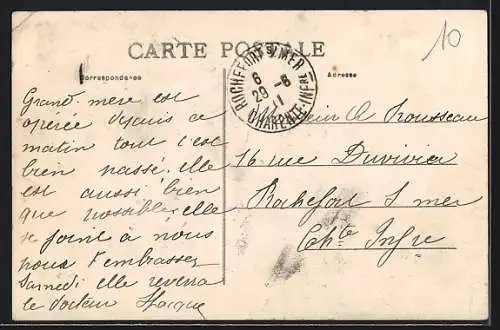 CARTE POSTALE
10
Correspondance
Adresse
ROCHEFORT S/ MER
6
29 -8
11
CHARENTE-INFRE
Grand-mère est
opérée depuis ce
matin tout s'est
bien passé. elle
est aussi bien
que possible, elle
se joint à nous
pour t'embrasser
Samedi elle reverra
le docteur
A Rousseau
16 rue Duvivier
Rochefort S mer
Chte Infre